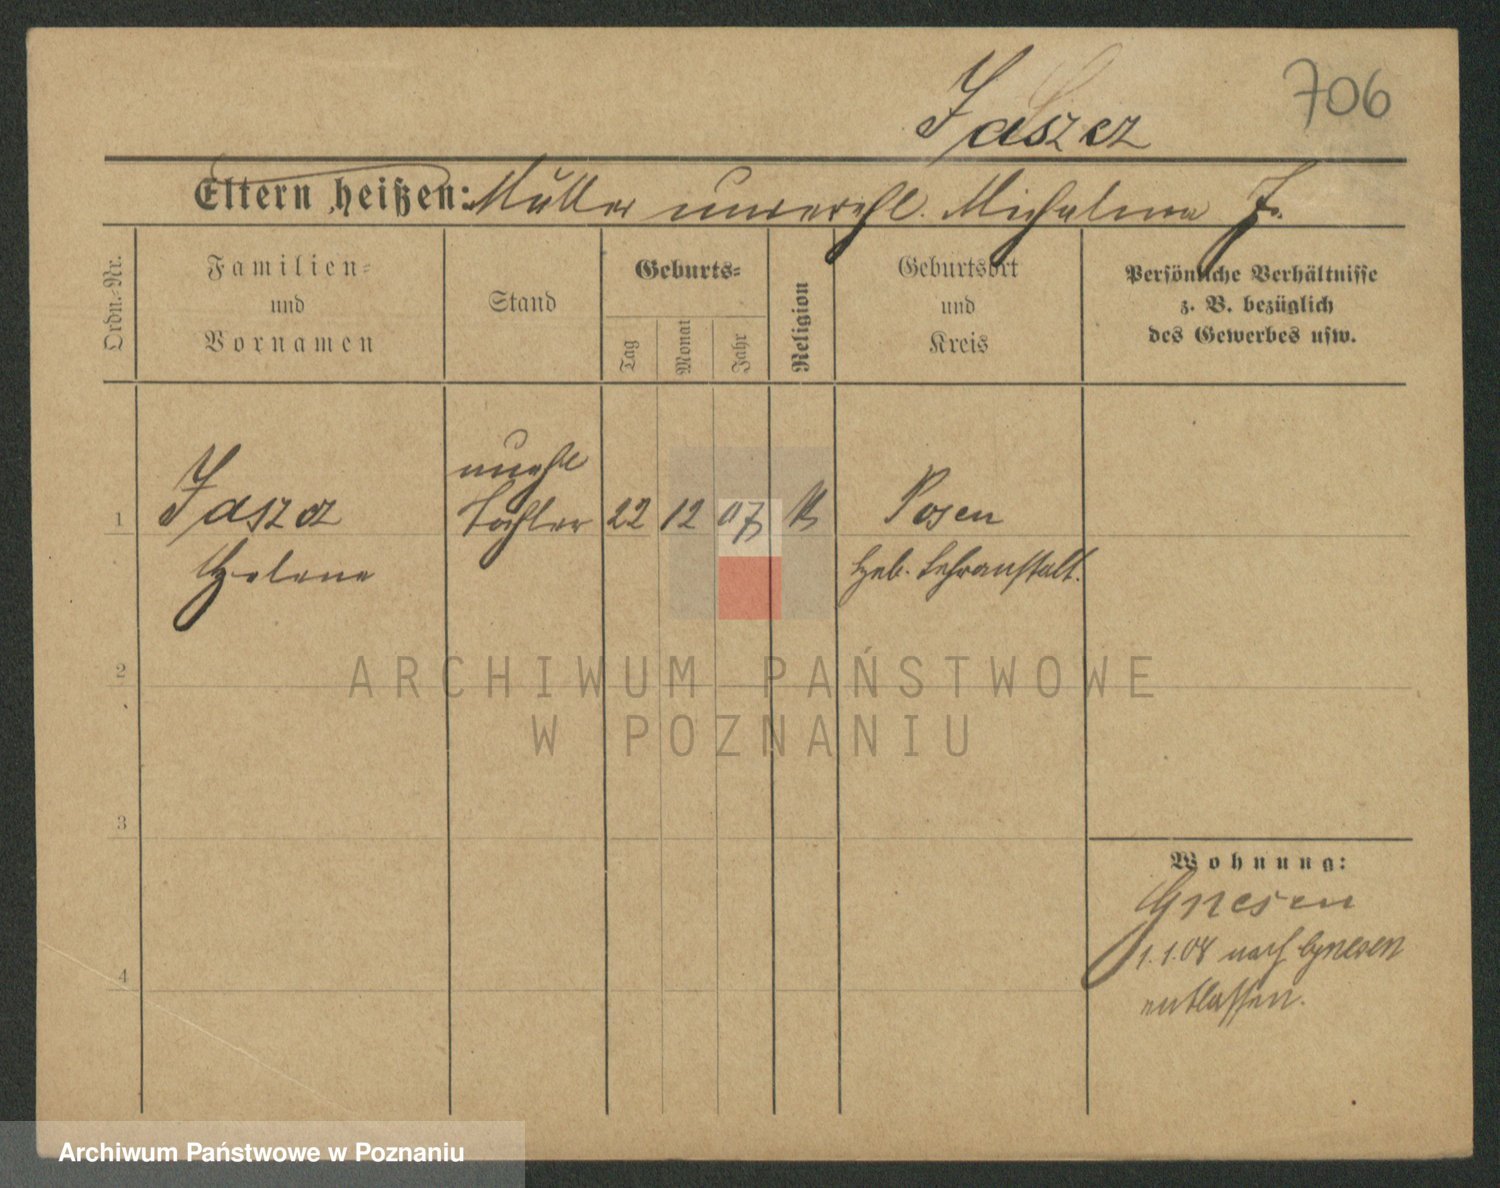 706
Jaszcz
Eltern heißen: Mutter unverehl. Michalina J.
Ordn.-Nr.
Familien-
und
Vornamen
Stand
Geburts-
Tag
Monat
Jahr
Religion
Geburtsort
und
Kreis
Persönliche Verhältnisse
z. B. bezüglich
des Gewerbes usw.
unehl
1 Jaszcz Tochter 22 12 07 Posen
Helene Heb. Lehranstalt.
2
ARCHIWUM PAŃSTWOWE
W POZNANIU
3
Wohnung:
Gnesen
1.1.08 nach Gnesen
4
entlassen.
Archiwum Państwowe w Poznaniu